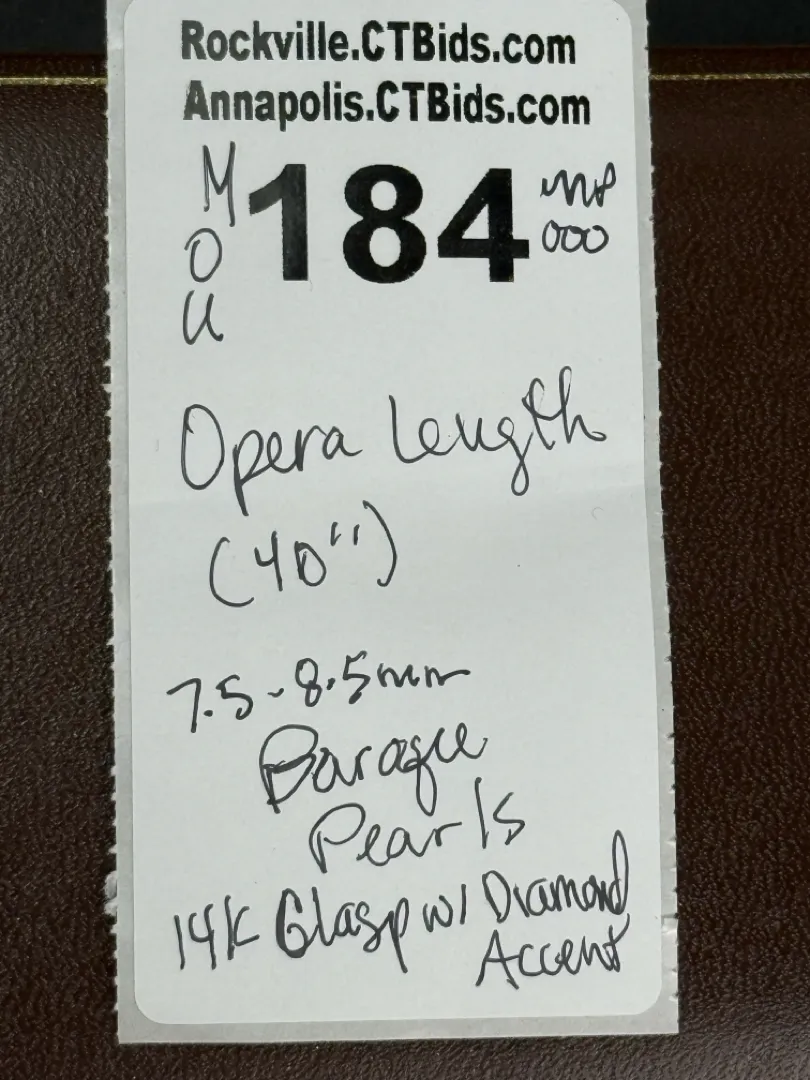 Rockville.CTBids.com
Annapolis.CTBids.com
MOU
184
000
Opera Length
(40")
7.5-8.5mm
Baroque
Pearls
14k Clasp w/ Diamond
Accent